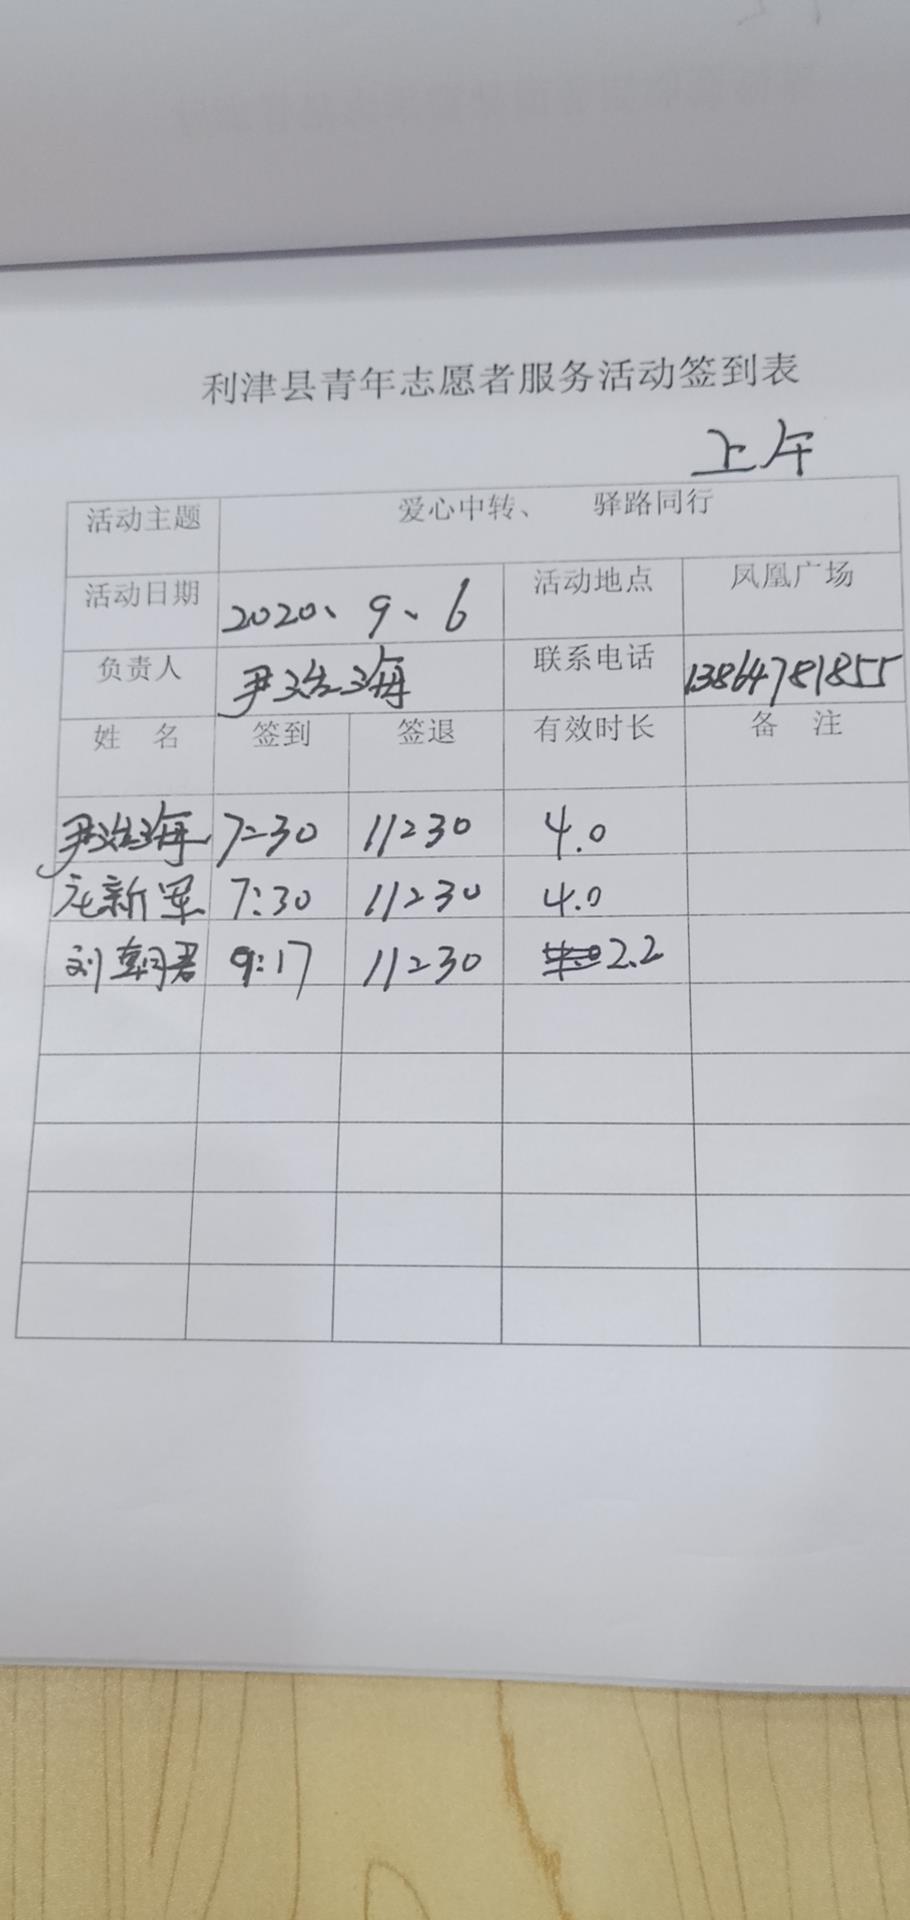 利津县青年志愿者服务活动签到表
上午
活动主题 爱心中转、 驿路同行
活动日期 2020、9、6 活动地点 凤凰广场
负责人 尹治海 联系电话 13864781855
姓 名 签到 签退 有效时长 备 注
尹治海 7:30 11:30 4.0
新军 7:30 11:30 4.0
刘朝君 9:17 11:30 2.2